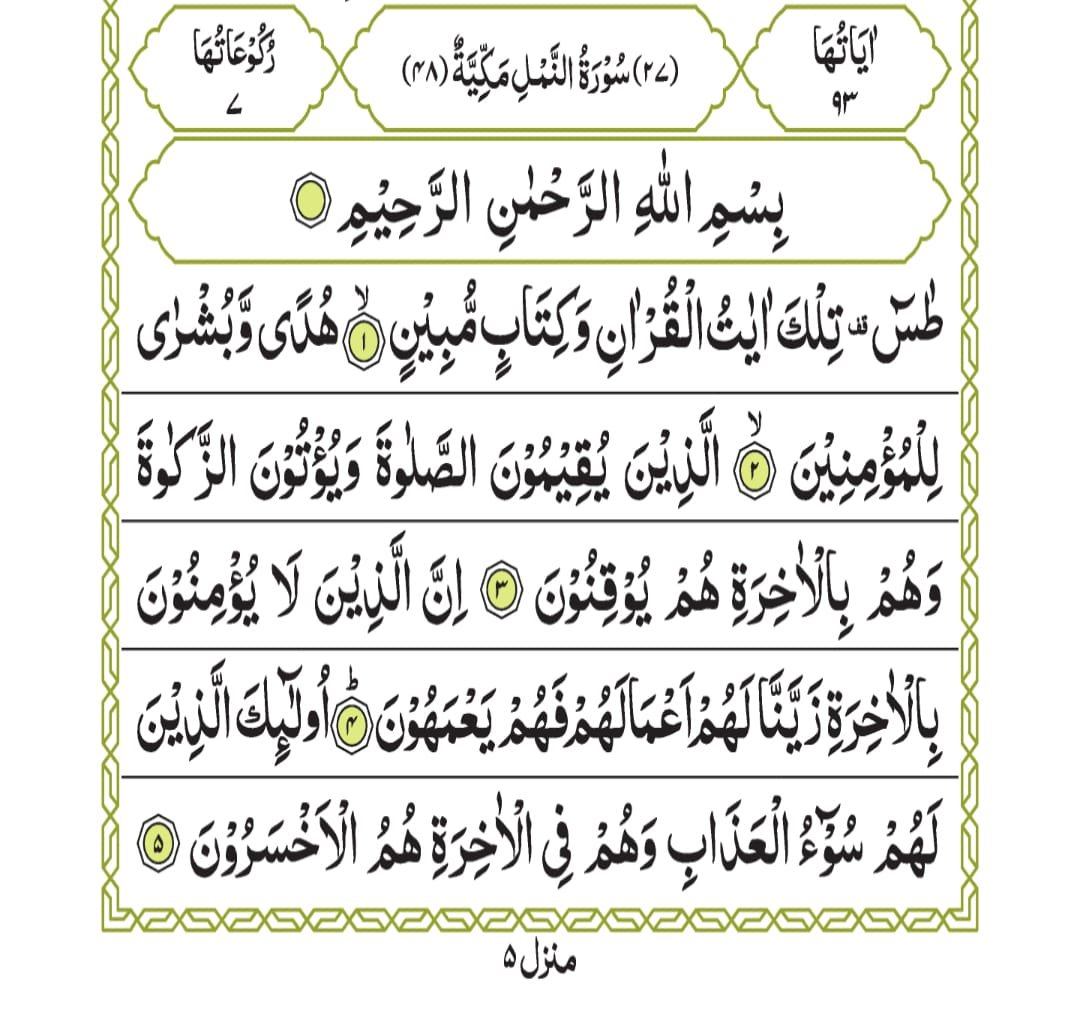 اٰيَاتُهَا ٩٣
(٢٧) سُوْرَةُ النَّمْلِ مَكِّيَّةٌ (٤٨)
رُكُوْعَاتُهَا ٧
بِسْمِ اللّٰهِ الرَّحْمٰنِ الرَّحِيْمِ
طٰسٓ قف تِلْكَ اٰيٰتُ الْقُرْاٰنِ وَكِتَابٍ مُّبِيْنٍ ۙ‏ ١ هُدًى وَّبُشْرٰى
لِلْمُؤْمِنِيْنَ ۙ‏ ٢ الَّذِيْنَ يُقِيْمُوْنَ الصَّلٰوةَ وَيُؤْتُوْنَ الزَّكٰوةَ
وَهُمْ بِالْاٰخِرَةِ هُمْ يُوْقِنُوْنَ ٣ اِنَّ الَّذِيْنَ لَا يُؤْمِنُوْنَ
بِالْاٰخِرَةِ زَيَّنَّا لَهُمْ اَعْمَالَهُمْ فَهُمْ يَعْمَهُوْنَ ؕ ٤ اُولٰٓئِكَ الَّذِيْنَ
لَهُمْ سُوْٓءُ الْعَذَابِ وَهُمْ فِى الْاٰخِرَةِ هُمُ الْاَخْسَرُوْنَ ٥
منزل ٥